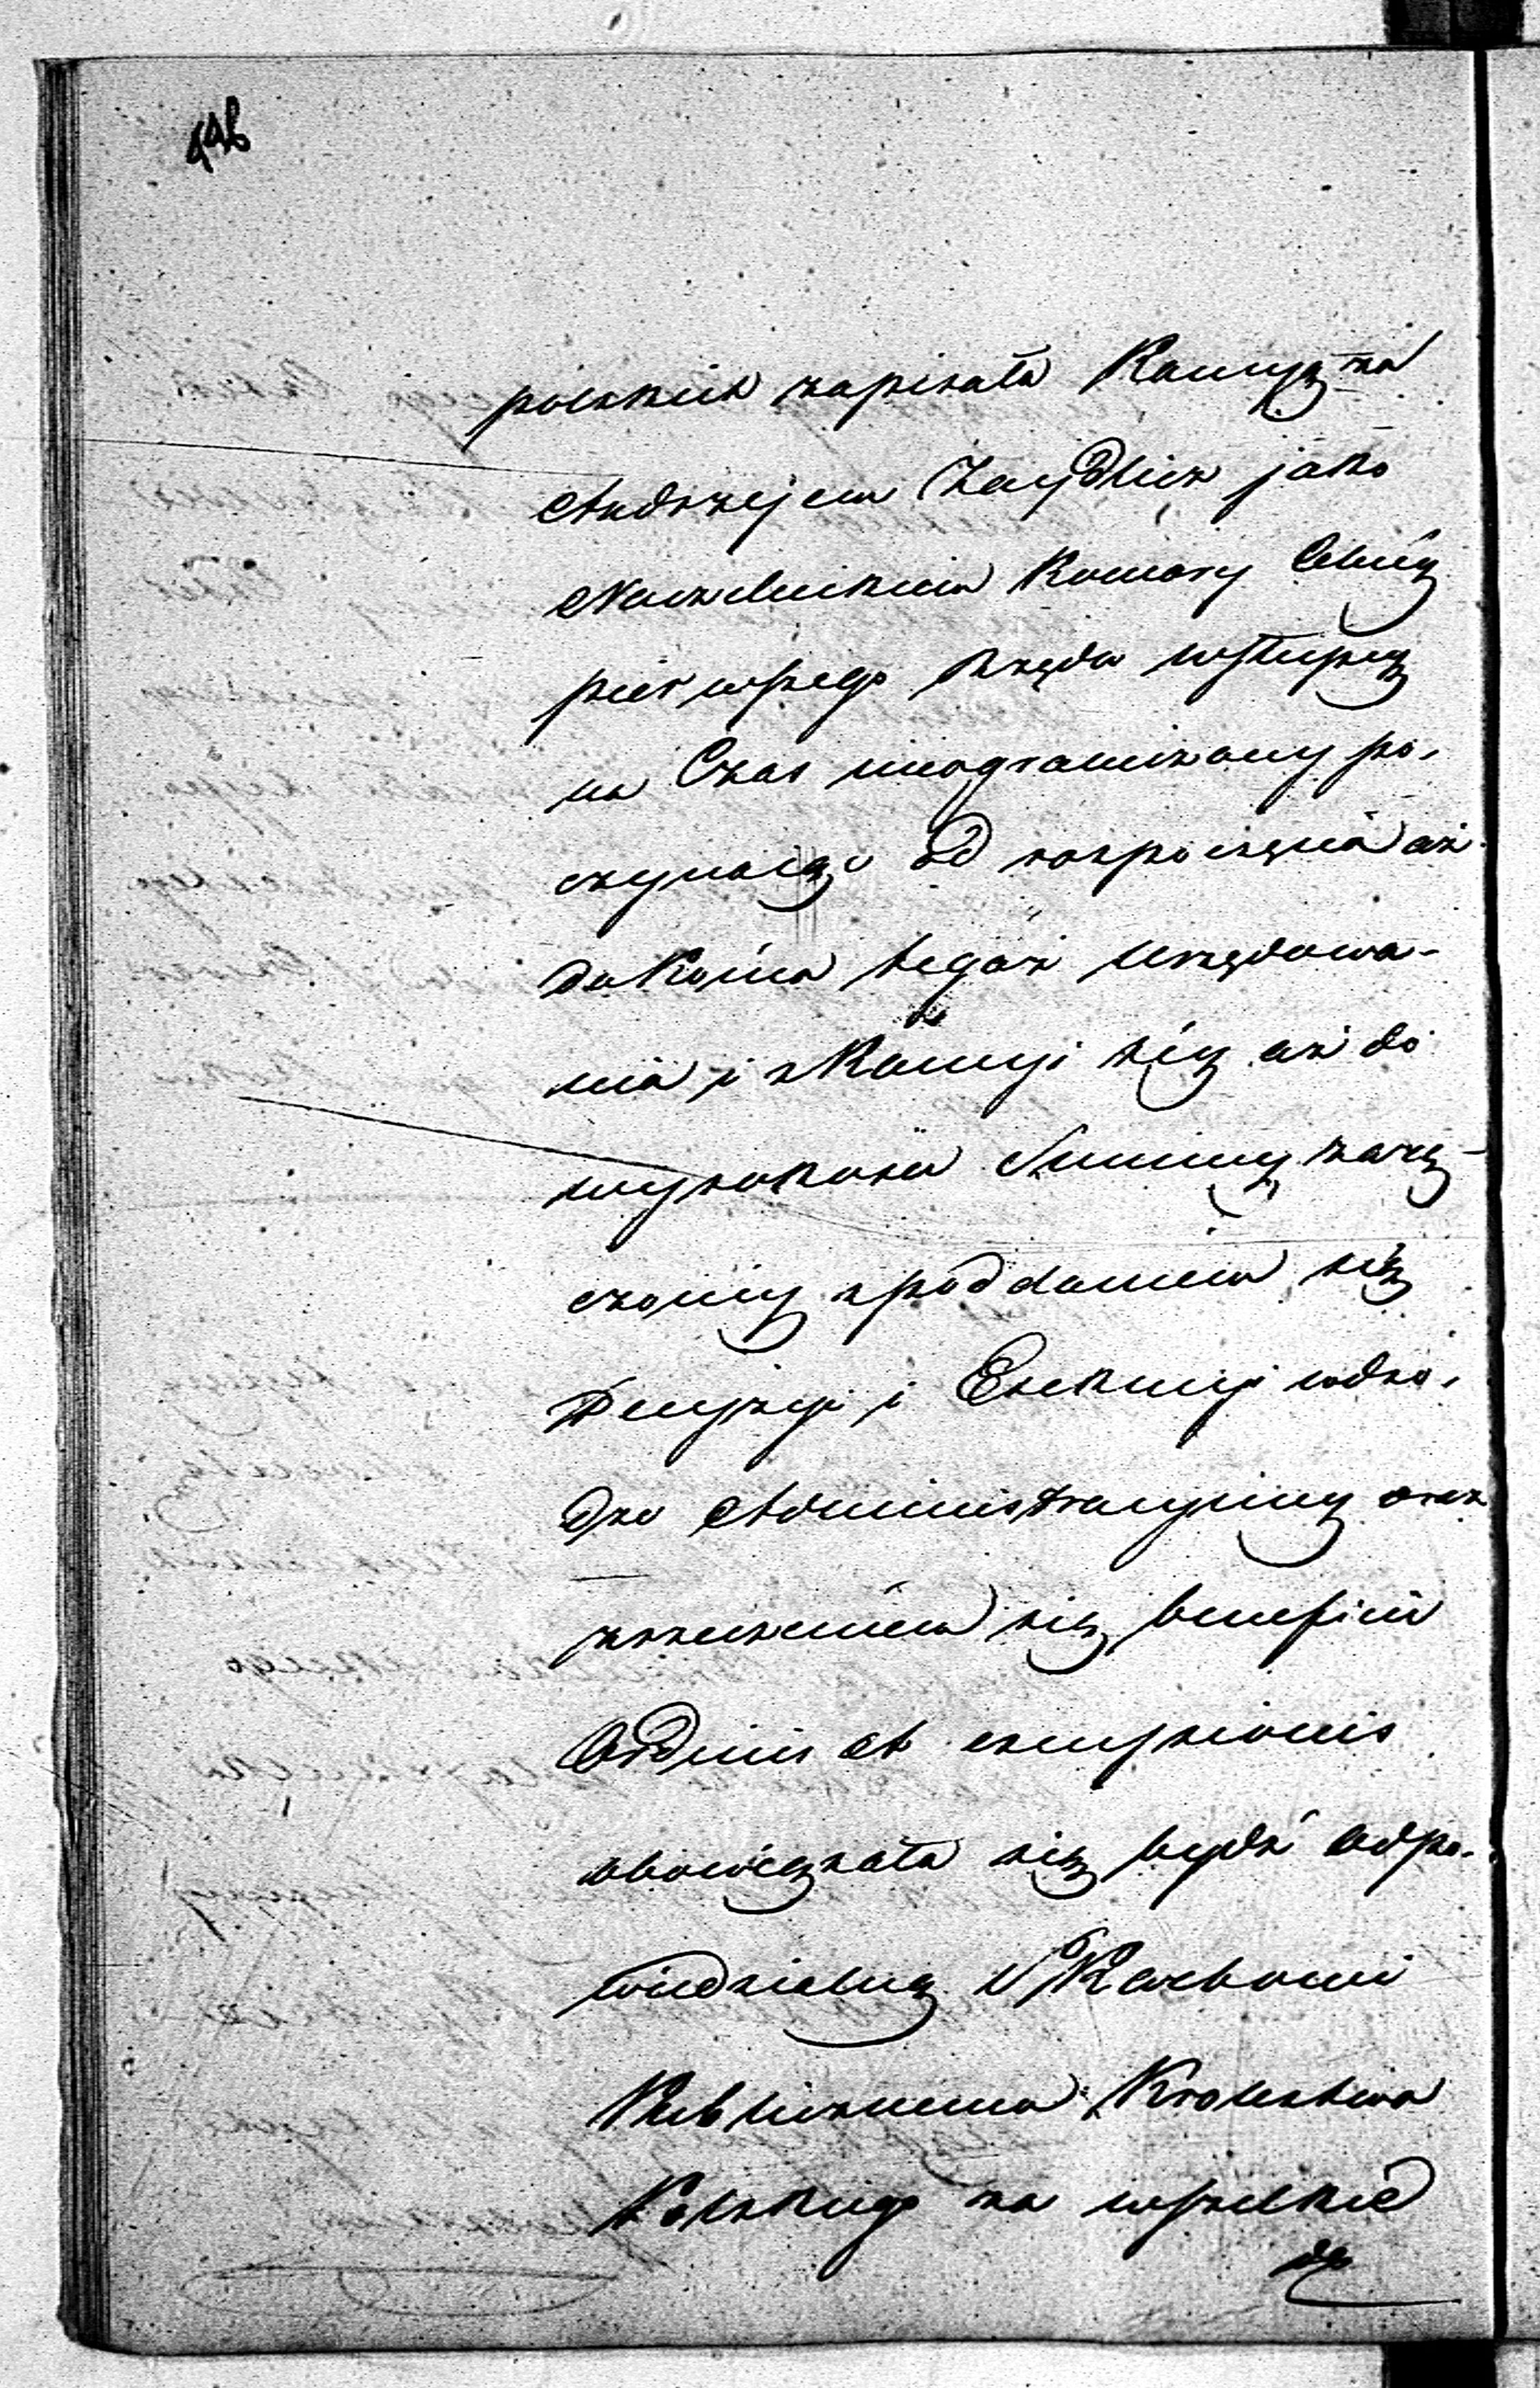 446
polskich zapisała Kaucyą za
Andrzejem Zaydlicz jako
Naczelnikiem Komory Celnéy
pierwszego Rzędu wstępnéy
na Czas nieograniczony po-
czynaiąc od rospoczęcia aż
do Końca tegoż Urzędowa-
nia i z Kaucyi téy aż do
wysokości Summy zarę-
czonéy z poddaniem się
Decyzyi i Exekucyi w dro-
dze Administracyinéy oraz
zrzeczeniem się beneficii
Ordinis et excussionis
obowiązała się bydź odpo-
wiedzialną Skarbowi
Publicznemu Krolestwa
Polskiego za wszelkie